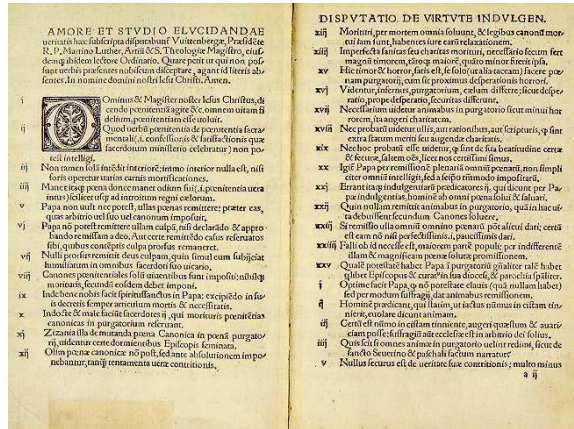 AMORE ET STVDIO ELVCIDANDAE
ueritatis hæc subscripta disputabunť Vuittenbergæ, Præsidēte
R. P. Martino Luther, Artiū & S. Theologiæ Magistro, eius-
demq; ibidem lectore Ordinario. Quare petit ut qui non pos-
sunt uerbis præsentes nobiscum disceptare, agant id literis ab-
sentes. In nomine domini nostri Iesu Christi. Amen.
i Ominus & Magister noster Iesus Christus, di
cendo pœnitētiā agite &c. omnem uitam fi
delium, pœnitentiam esse uoluit.
ij Quod uerbū pœnitentia de pœnitentia sacra
mentali (.i. confessionis & satisfactionis quæ
sacerdotum ministerio celebratur) non po-
test intelligi.
iij Non tamen solā intēdit interiorē: immo interior nulla est, nisi
foris operetur uarias carnis mortificationes.
iiij Manet itaq; pœna donec manet odium sui (.i. pœnitentia uera
intus) scilicet usq; ad introitum regni cælorum.
v Papa non uult nec potest, ullas pœnas remittere: præter eas,
quas arbitrio uel suo uel canonum imposuit.
vj Papa nō potest remittere ullam culpā, nisi declarādo & appro-
bando remissam a deo. Aut certe remittēdo casus reseruatos
sibi, quibus contēptis culpa prorsus remaneret.
vij Nulli prorsus remittit deus culpam, quin simul eum subijciat
humiliatum in omnibus sacerdoti suo uicario.
viij Canones pœnitentiales solū uiuentibus sunt impositi: nihilq;
morituris, secundū eosdem debet imponi.
ix Inde bene nobis facit spiritussanctus in Papa: excipiēdo in su-
is decretis semper articulum mortis & necessitatis.
x Indocte & male faciūt sacerdotes ij, qui morituris pœnitētias
canonicas in purgatorium reseruant.
xj Zizania illa de mutanda pœna Canonica in pœnā purgato-
rij, uidentur certe dormientibus Episcopis seminata.
xij Olim pœnæ canonicæ nō post, sed ante absolutionem impo-
nebantur, tanq̄ tentamenta ueræ contritionis.
DISPVTATIO DE VIRTVTE INDVLGEN.
xiij Morituri, per mortem omnia soluunt, & legibus canonū mor-
tui iam sunt, habentes iure earū relaxationem.
xiiij Imperfecta sanitas seu charitas morituri, necessario secum fert
magnū timorem, tātoq; maiorē, quāto minor fuerit ipsa.
xv Hic timor & horror, satis est, se solo (ut alia taceam) facere pœ-
nam purgatorij, cum sit proximus desperationis horrori.
xvj Videntur, infernus, purgatorium, cælum differre: sicut despe-
ratio, prope desperatio, securitas differunt.
xvij Necessarium uidetur animabus in purgatorio sicut minui hor-
rorem, ita augeri charitatem.
xviij Nec probatū uidetur ullis, aut rationibus, aut scripturis, q̄ sint
extra statum meriti seu augendæ charitatis.
xix Nec hoc probatū esse uidetur, q̄ sint de sua beatitudine certæ
& securæ, saltem oēs, licet nos certissimi simus.
xx Igit̄ Papa per remissionē plenariā omniū pœnarū, non simpli
citer omniū intelligit, sed a seipso tīmodo impositarū.
xxj Errant itaq; indulgentiarū prædicatores ij, qui dicunt per Pa-
pæ indulgentias, hominē ab omni pœna solui & saluari.
xxij Quin nullam remittit animabus in purgatorio, quā in hac ui-
ta debuissent secundum Canones soluere.
xxiij Si remissio ulla omniū omnino pœnarū pōt alicui dari: certū
est eam nō nisi perfectissimis .i. paucissimis, dari.
xxiiij Falli ob id necesse est, maiorem partē populi: per indifferentē
illam & magnificam pœnæ solutæ promissionem.
xxv Qualē potestatē habet Papa ī purgatoriū gn̄aliter talē habet
q̄libet Episcopus & curat9 in sua diocesi, & parochia sp̄aliter.
i Optime facit Papa, q̄ nō potestate clauis (quā nullam habet)
sed per modum suffragij, dat animabus remissionem.
ij Hominē prædicant, qui statim, ut iactus nūmus in cistam tin-
nierit, euolare dicunt animam.
iij Certū est nūmo in cistam tinniente, augeri quæstum & auari-
ciam posse: suffragiū aūt ecclesiæ est in arbitrio dei solius.
iiij Quis scit si omnes animæ in purgatorio uelint redimi, sicut de
sancto Seuerino & paschali factum narratur.
v Nullus securus est de ueritate suæ contritionis: multo minus
a ij